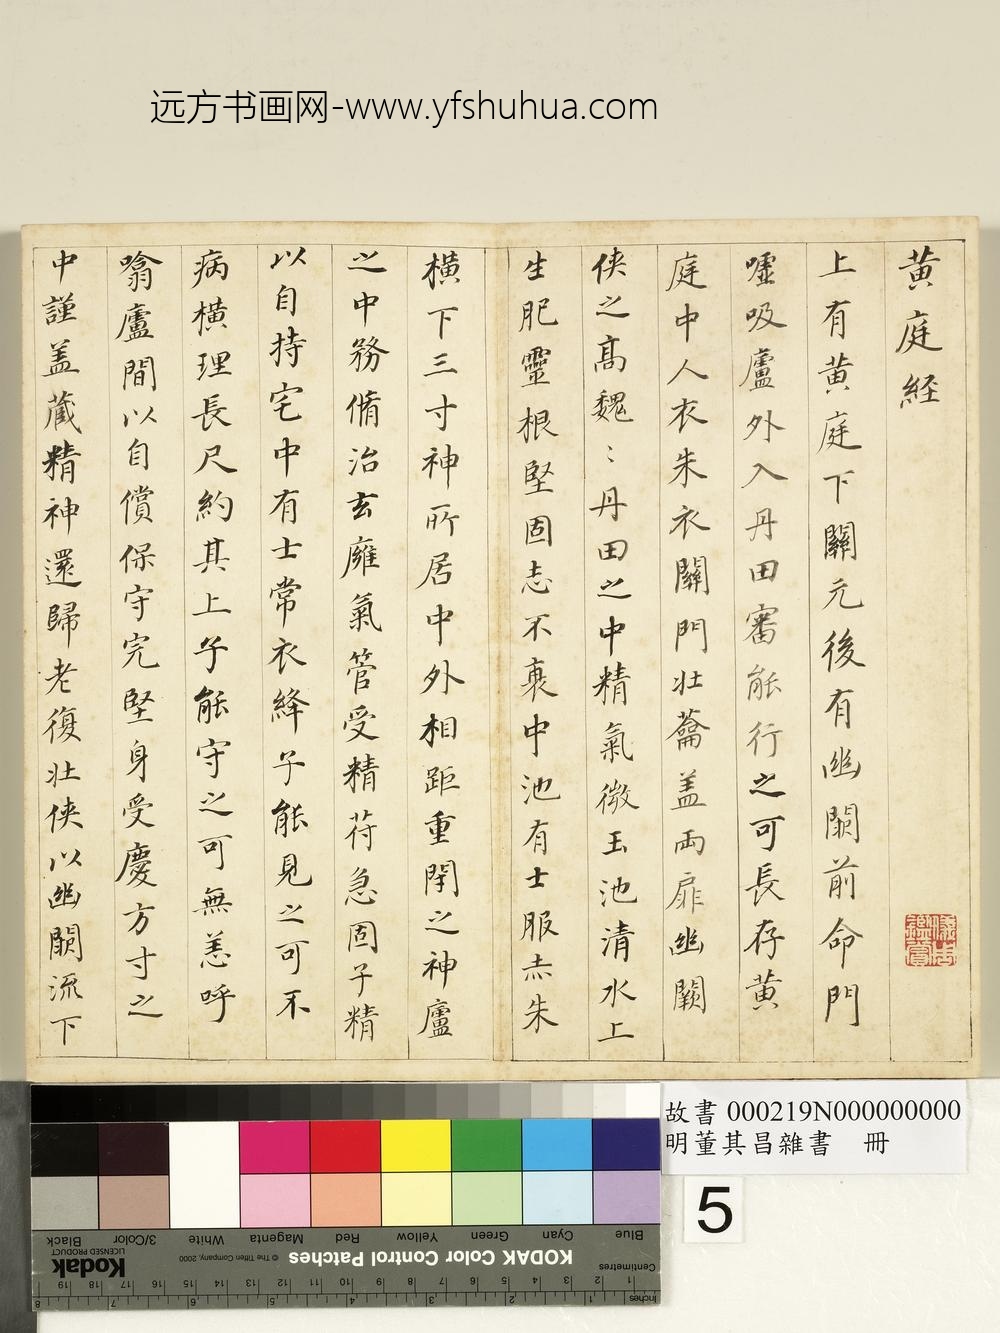 远方书画网-www.yfshuhua.com
黄庭経
上有黄庭下關元後有幽闕前命門
嘘吸廬外入丹田審能行之可長存黄
庭中人衣朱衣關門壯蘥盖兩扉幽闕
侠之髙魏〻丹田之中精氣微玉池清水上
生肥靈根堅固志不衰中池有士服赤朱
橫下三寸神所居中外相距重閇之神廬
之中務脩治玄㢕氣管受精苻急固子精
以自持宅中有士常衣絳子能見之可不
病橫理長尺約其上子能守之可無恙呼
噏廬間以自償保守完堅身受慶方寸之
中謹盖藏精神還歸老復壯侠以幽闕流下
故書 000219N000000000
明董其昌雜書 冊
5
Blue Cyan Green Yellow Red Magenta White 3/Color Black
KODAK Color Control Patches © The Tiffen Company, 2000 Kodak LICENSED PRODUCT
Centimetres 1 2 3 4 5 6 7 8 9 10 11 12 13 14 15 16 17 18 19
Inches 1 2 3 4 5 6 7 8